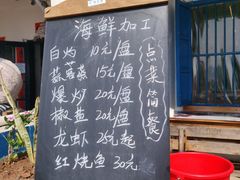 海鲜加工
白灼 10元/盘
蒜蓉蒸 15元/盘
爆炒 20元/盘
椒盐 20元/盘
龙虾 25元起
红烧鱼 30元
点菜简餐